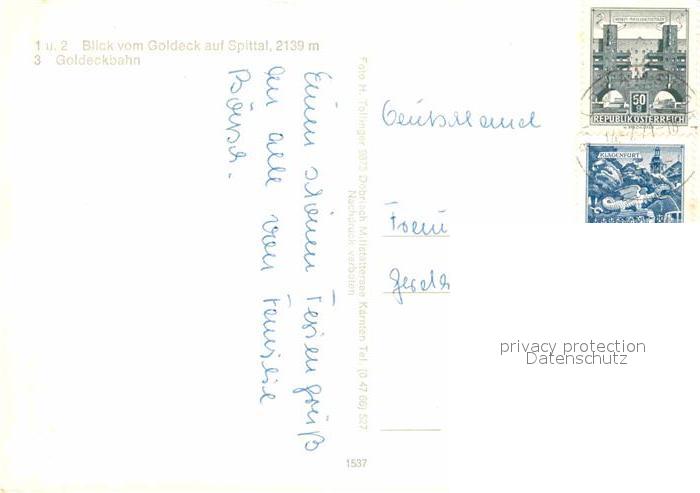 1 u. 2 Blick vom Goldeck auf Spittal, 2139 m
3 Goldeckbahn
Einen schönen Feriengruß
an alle von Familie
Foto H. Tollinger 9873 Döbriach Millstättersee Kärnten Tel. (0 47 66) 527
Nachdruck verboten
1537
Deutschland
50
REPUBLIK ÖSTERREICH
KLAGENFURT
privacy protection
Datenschutz